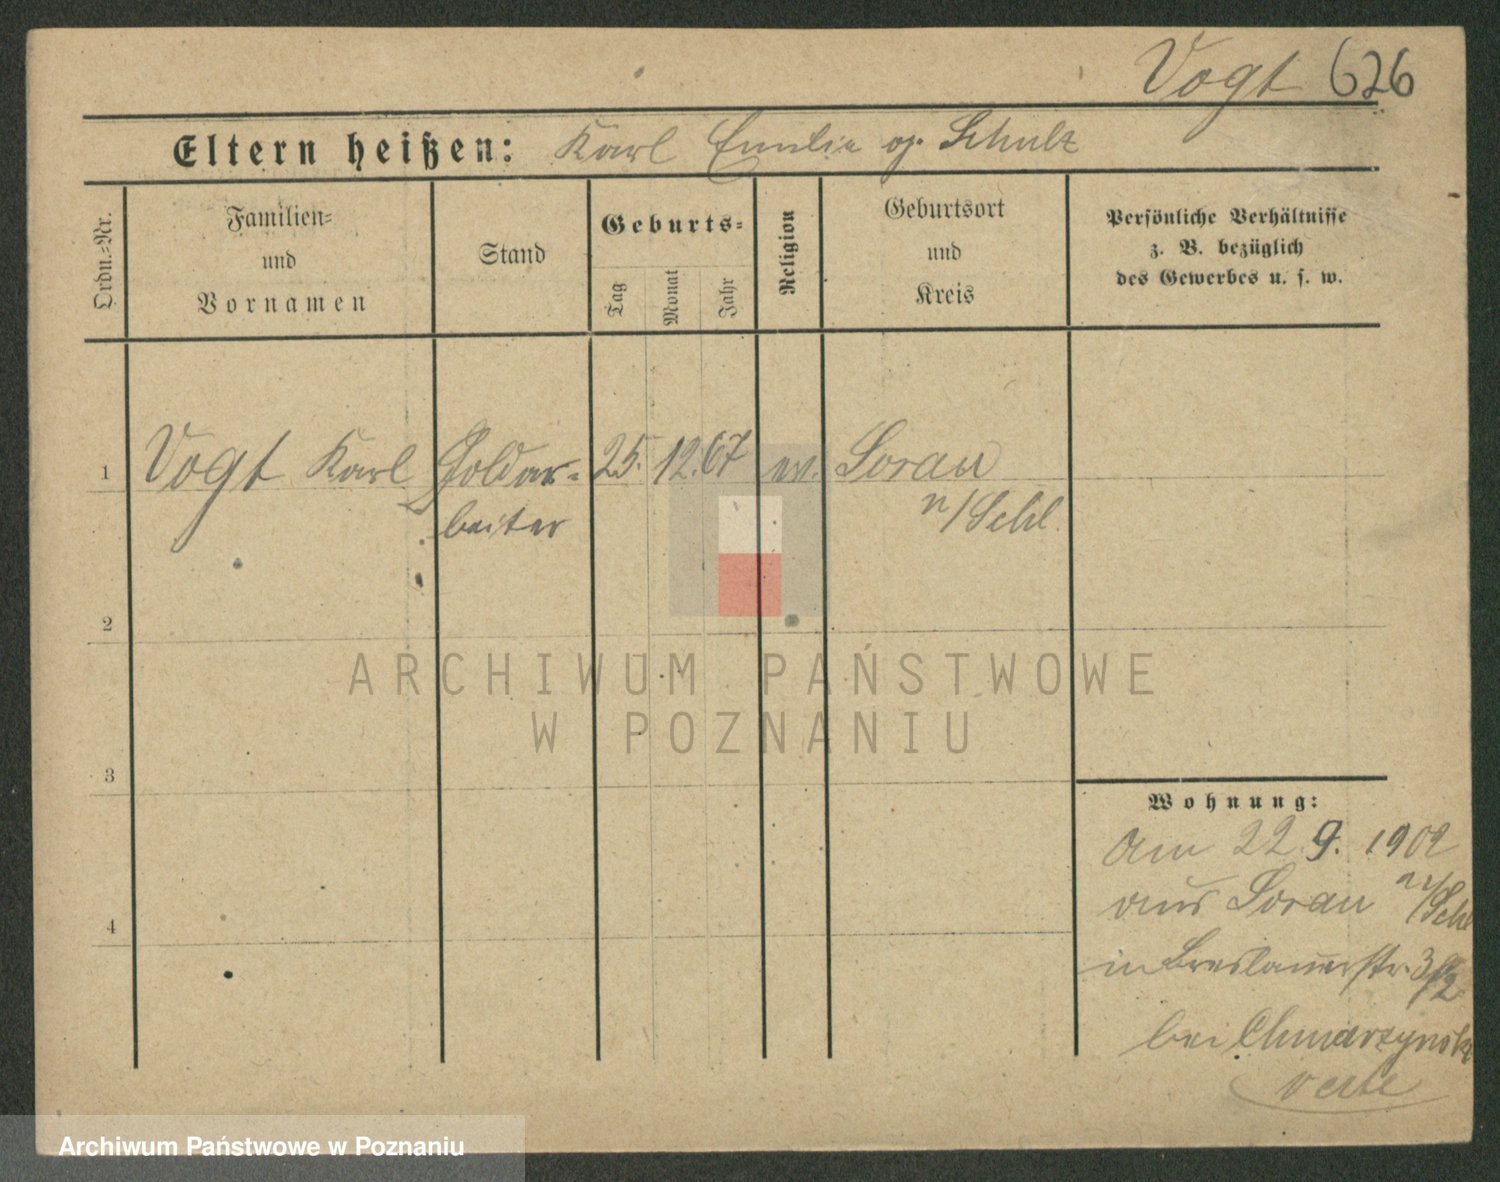 Vogt 626
Eltern heißen: Karl Emilie og. Schulz
Ordn.-Nr.
Familien-
und
Vornamen
Stand
Geburts-
Tag
Monat
Jahr
Religion
Geburtsort
und
Kreis
Persönliche Verhältnisse
z. B. bezüglich
des Gewerbes u. s. w.
1 Vogt Karl Goldar- 25. 12. 67 ev. Sorau
beiter n/Schl.
2
ARCHIWUM PAŃSTWOWE
W POZNANIU
3
Wohnung:
Am 22 9. 1902
aus Sorau n/Schl
4
in Breslauerstr.
bei Chmarzynski
verte
Archiwum Państwowe w Poznaniu